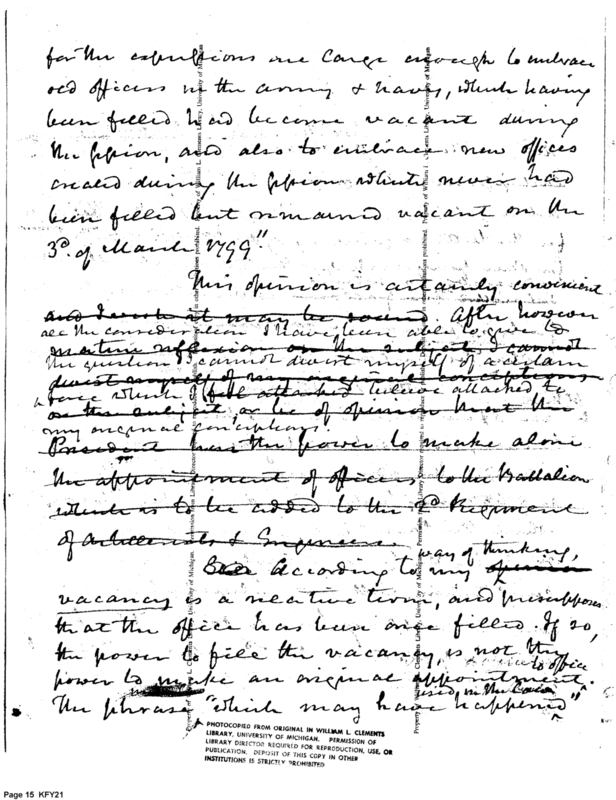 for the expressions are large enough to embrace
old offices in the army & navy, which having
been filled had become vacant during
the session, and also to embrace new offices
created during the session which never had
been filled but remained vacant on the
3d. of March 1799"
This opinion is certainly convenient
and I wish it may be sound. After however
all the consideration I have been able to give to
mature reflexion on the subject, I cannot
the question I cannot divest myself of a certain
divest myself of my original conceptions
force which I felt attached believe attached to
on the subject, or be of opinion that the
my original conceptions.
President has the power to make alone
the appointment of officers to the Battalion
which is to be added to the 2d Regiment
of Artillerists & Engineers
way of thinking,
According to my opinion
vacancy is a relative term, and presupposes
that the office has been once filled. If so,
the power to fill the vacancy, is not the
to office
power to make an original appointment.
used in the
The phrase "which may have happened"
PHOTOCOPIED FROM ORIGINAL IN WILLIAM L. CLEMENTS
LIBRARY, UNIVERSITY OF MICHIGAN. PERMISSION OF
LIBRARY DIRECTOR REQUIRED FOR REPRODUCTION, USE, OR
PUBLICATION. DEPOSIT OF THIS COPY IN OTHER
INSTITUTIONS IS STRICTLY PROHIBITED
Page 15 KFY21